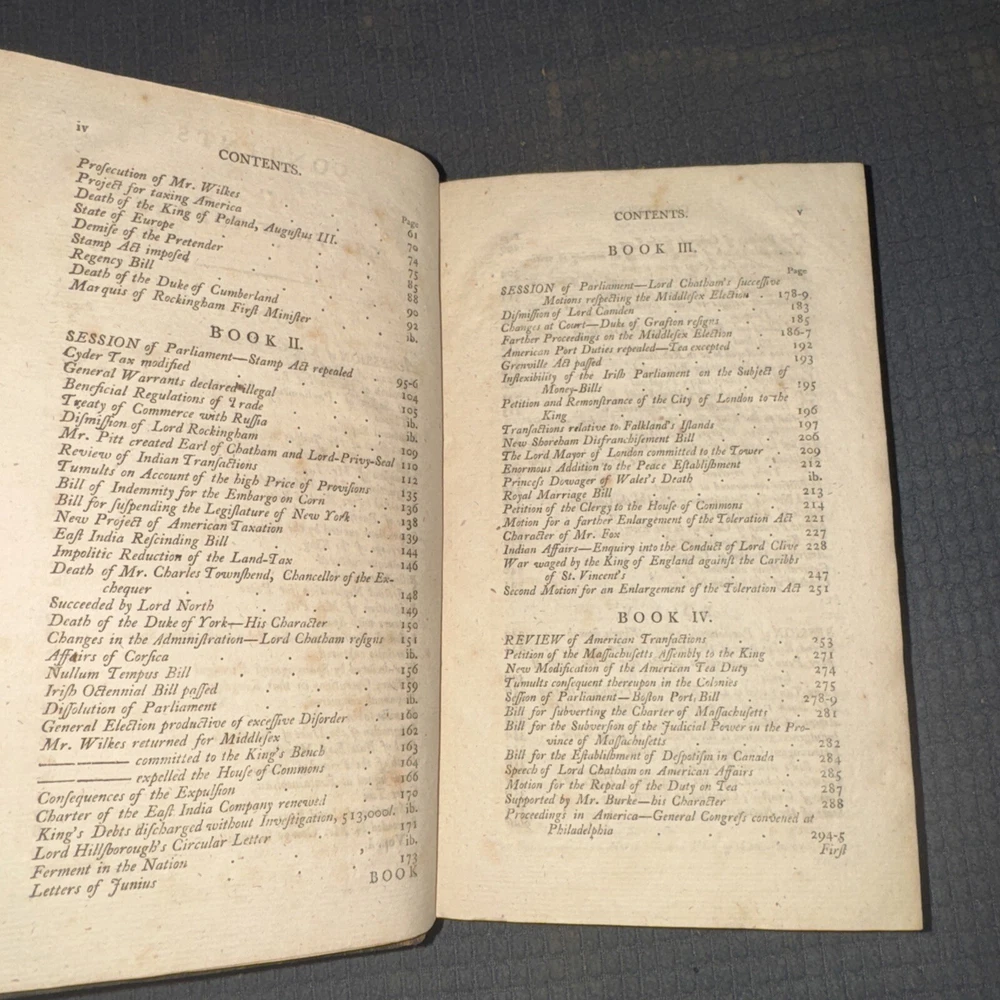 iv
CONTENTS.
Page
Proſecution of Mr. Wilkes . 61
Project for taxing America . 70
Death of the King of Poland, Auguſtus III. . 74
State of Europe . 75
Demiſe of the Pretender . 85
Stamp Act impoſed . 88
Regency Bill . 90
Death of the Duke of Cumberland . 92
Marquis of Rockingham Firſt Miniſter . ib.
BOOK II.
SESSION of Parliament—Stamp Act repealed . 95-6
Cyder Tax modified . 104
General Warrants declared illegal . 105
Beneficial Regulations of Trade . ib.
Treaty of Commerce with Ruſſia . ib.
Diſmiſſion of Lord Rockingham . 109
Mr. Pitt created Earl of Chatham and Lord-Privy-Seal 110
Review of Indian Tranſactions . 112
Tumults on Account of the high Price of Proviſions 135
Bill of Indemnity for the Embargo on Corn . 136
Bill for ſuſpending the Legiſlature of New York . 138
New Project of American Taxation . 139
Eaſt India Reſcinding Bill . 144
Impolitic Reduction of the Land-Tax . 146
Death of Mr. Charles Townſhend, Chancellor of the Ex-
chequer . 148
Succeeded by Lord North . 149
Death of the Duke of York—His Character . 150
Changes in the Adminiſtration—Lord Chatham reſigns 151
Affairs of Corſica . ib.
Nullum Tempus Bill . 156
Iriſh Octennial Bill paſſed . 159
Diſſolution of Parliament . ib.
General Election productive of exceſſive Diſorder . 160
Mr. Wilkes returned for Middleſex . 162
—— —— committed to the King's Bench . 163
—— —— expelled the Houſe of Commons . 164
Conſequences of the Expulſion . 166
Charter of the Eaſt India Company renewed . 170
King's Debts diſcharged without Inveſtigation, 513,000l. ib.
Lord Hillſborough's Circular Letter . 171
Ferment in the Nation . ib.
Letters of Junius . 173
BOOK
CONTENTS. v
BOOK III.
Page
SESSION of Parliament—Lord Chatham's ſucceſſive
Motions reſpecting the Middleſex Election . 178-9
Diſmiſſion of Lord Camden . 183
Changes at Court—Duke of Grafton reſigns . 185
Farther Proceedings on the Middleſex Election . 186-7
American Port Duties repealed—Tea excepted . 192
Grenville Act paſſed . 193
Inflexibility of the Iriſh Parliament on the Subject of
Money-Bills . 195
Petition and Remonſtrance of the City of London to the
King . 196
Tranſactions relative to Falkland's Iſlands . 197
New Shoreham Disfranchiſement Bill . 206
The Lord Mayor of London committed to the Tower . 209
Enormous Addition to the Peace Eſtabliſhment . 212
Princeſs Dowager of Wales's Death . ib.
Royal Marriage Bill . 213
Petition of the Clergy to the Houſe of Commons . 214
Motion for a farther Enlargement of the Toleration Act 221
Character of Mr. Fox . 227
Indian Affairs—Enquiry into the Conduct of Lord Clive 228
War waged by the King of England againſt the Caribbs
of St. Vincent's . 247
Second Motion for an Enlargement of the Toleration Act 251
BOOK IV.
REVIEW of American Tranſactions . 253
Petition of the Maſſachuſetts Aſſembly to the King . 271
New Modification of the American Tea Duty . 274
Tumults conſequent thereupon in the Colonies . 275
Seſſion of Parliament—Boſton Port Bill . 278-9
Bill for ſubverting the Charter of Maſſachuſetts . 281
Bill for the Subverſion of the Judicial Power in the Pro-
vince of Maſſachuſetts . 282
Bill for the Eſtabliſhment of Deſpotiſm in Canada . 284
Speech of Lord Chatham on American Affairs . 285
Motion for the Repeal of the Duty on Tea . 287
Supported by Mr. Burke—his Character . 288
Proceedings in America—General Congreſs convened at
Philadelphia . 294-5
Firſt